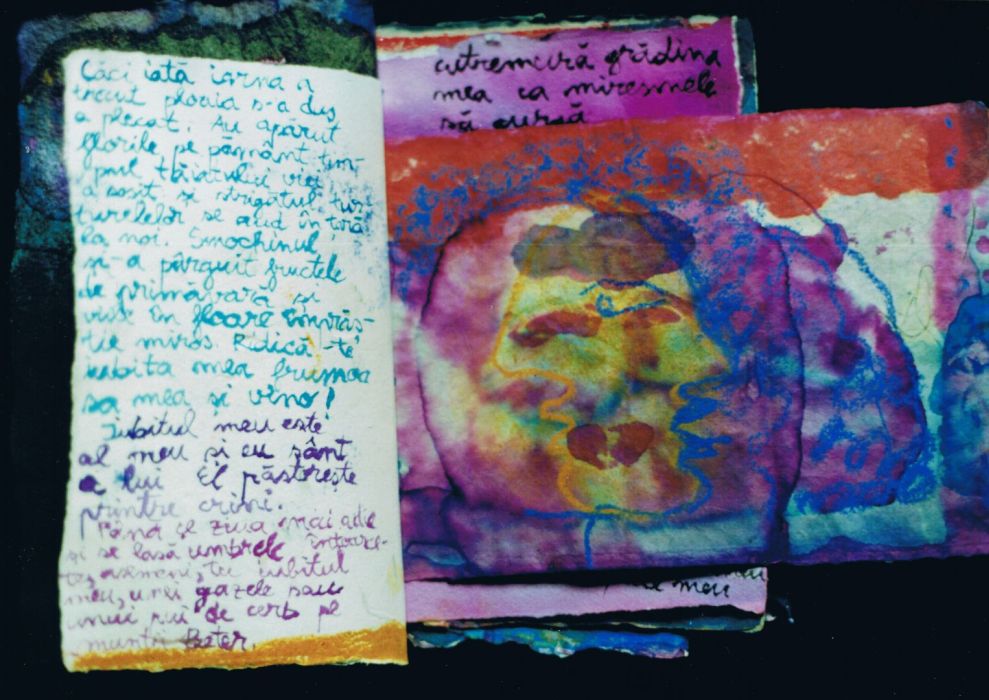 Căci iată iarna a
trecut ploaia s-a dus
a plecat. Au apărut
florile pe pământ tim-
pul tăiatului viei
a sosit și strigătul tur-
turelelor se aud în țară
la noi. Smochinul
și-a pârguit fructele
de primăvară și
vițe în floare împrăș-
tie miros. Ridică-te
iubita mea frumoa
sa mea și vino!
Iubitul meu este
al meu și eu sânt
a lui El păstorește
printre crini.
Până ce ziua mai adie
și se lasă umbrele întoarce-
te, asemeni, tu iubitul
meu, unei gazele sau
unui pui de cerb pe
munții Beter.
cutremură grădina
mea ca miresmele
să curgă
meu